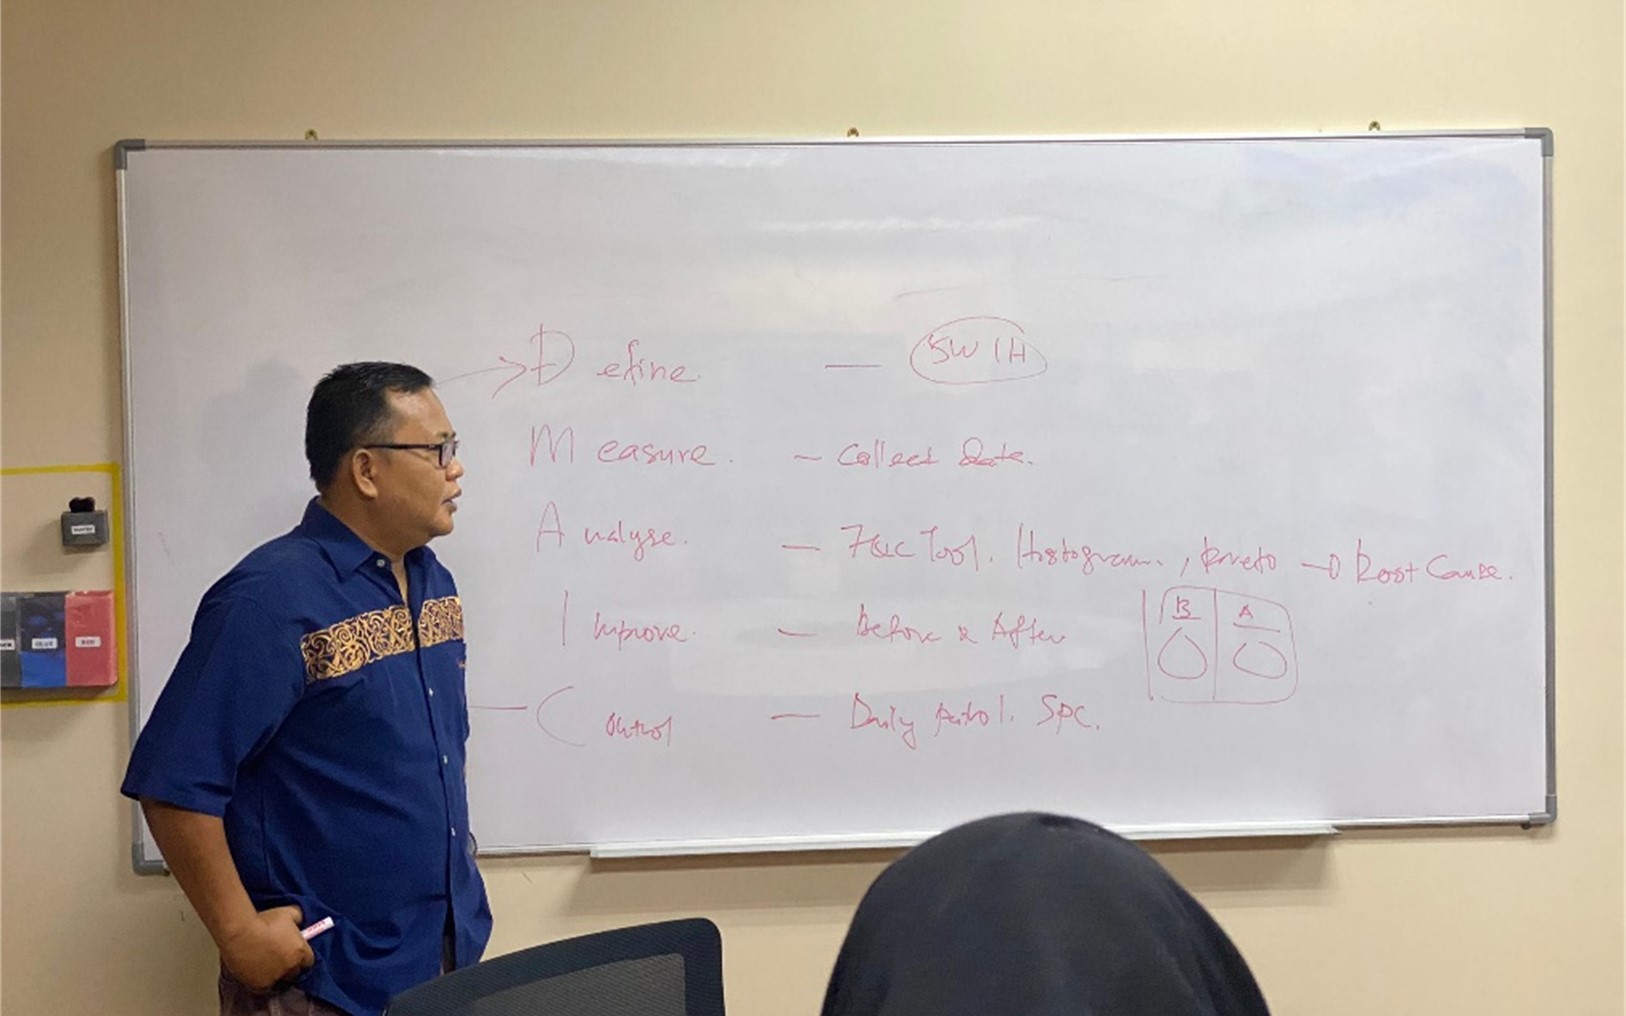 Define - 5W1H
Measure. - Collect Data.
Analyse. - 7QC Tool. Histogram, Pareto → Root Cause.
Improve. - Before & After
B A
Control - Daily patrol. SPC.
BLUE
RED